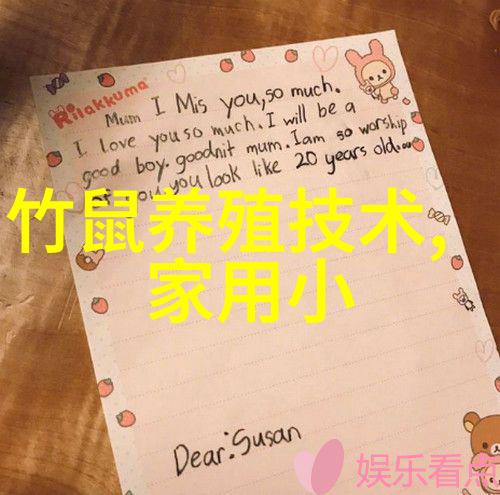 Rilakkuma
Mum I Mis you,so much.
I love you so much. I will be a
good boy. goodnit mum. I am so worship
you. you look like 20 years old.
竹鼠养殖技术,
家用小
Dear:Susan
娱乐看点